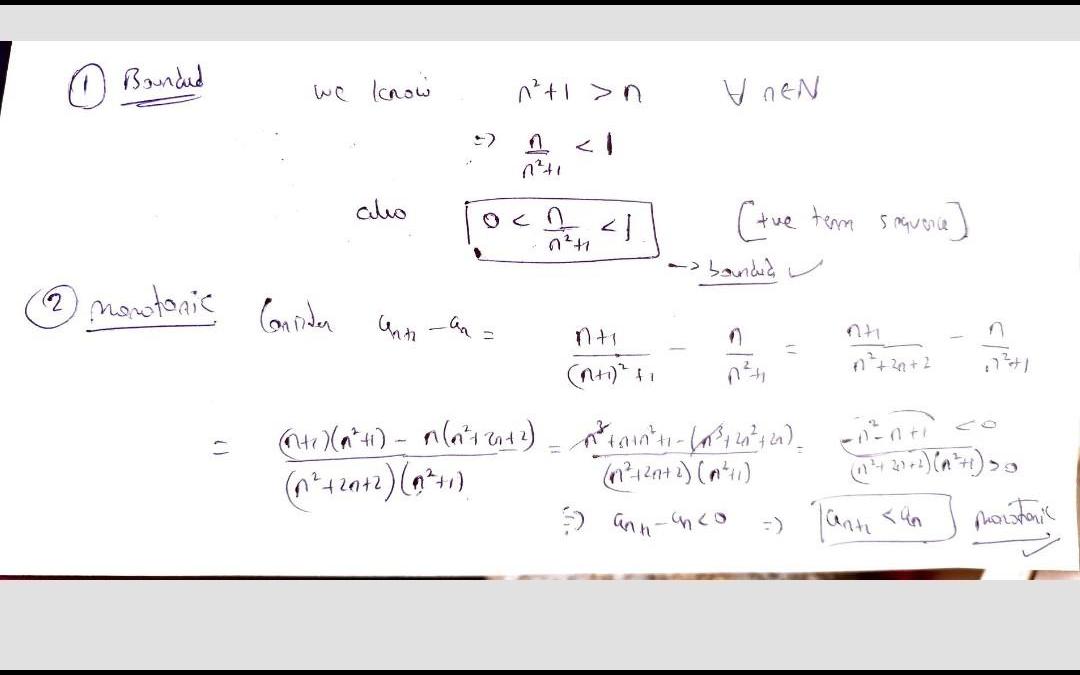 ① Bounded we know n²+1 > n ∀ n∈N
=> n/(n²+1) < 1
also 0 < n/(n²+1) < 1 [+ve term sequence]
-> bounded ✓
② monotonic Consider aₙ₊₁ - aₙ = (n+1)/((n+1)²+1) - n/(n²+1) = (n+1)/(n²+2n+2) - n/(n²+1)
= ((n+1)(n²+1) - n(n²+2n+2))/((n²+2n+2)(n²+1)) = (n³+n+n²+1-(n³+2n²+2n))/((n²+2n+2)(n²+1)) = (-n²-n+1 < 0)/((n²+2n+2)(n²+1) > 0)
=> aₙ₊₁ - aₙ < 0 => aₙ₊₁ < aₙ monotonic ✓